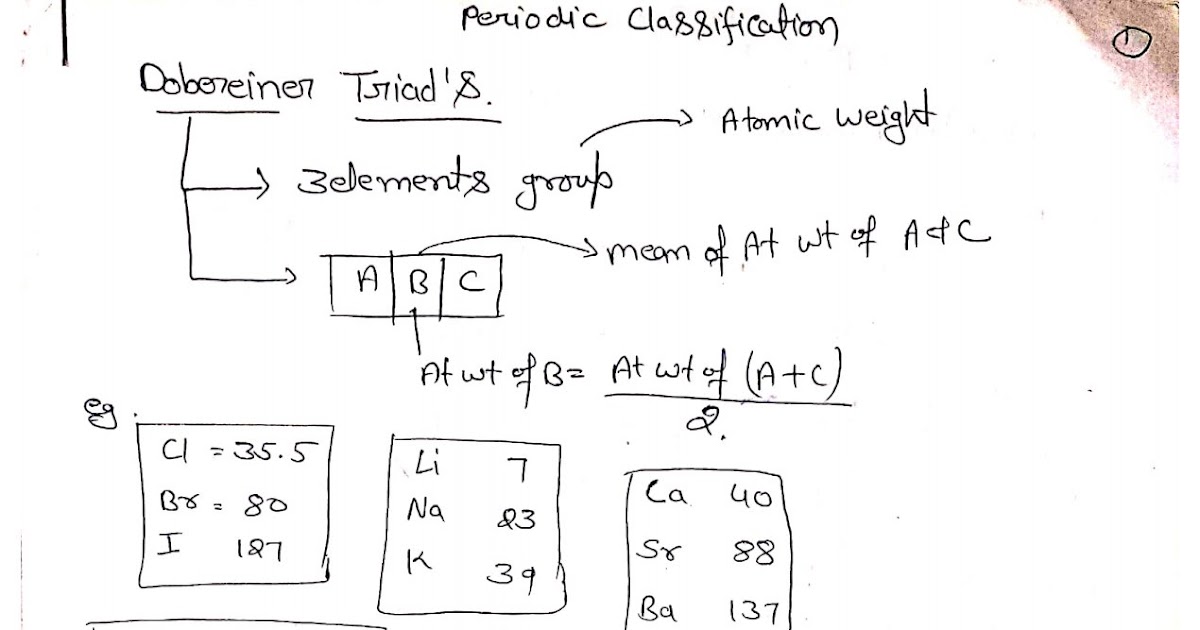 Periodic Classification
1
Dobereiner Triad's.
Atomic weight
3elements group
mean of At wt of A & C
A B C
At wt of B = At wt of (A+C)
2.
eg.
Cl = 35.5
Br = 80
I 127
Li 7
Na 23
K 39
Ca 40
Sr 88
Ba 137